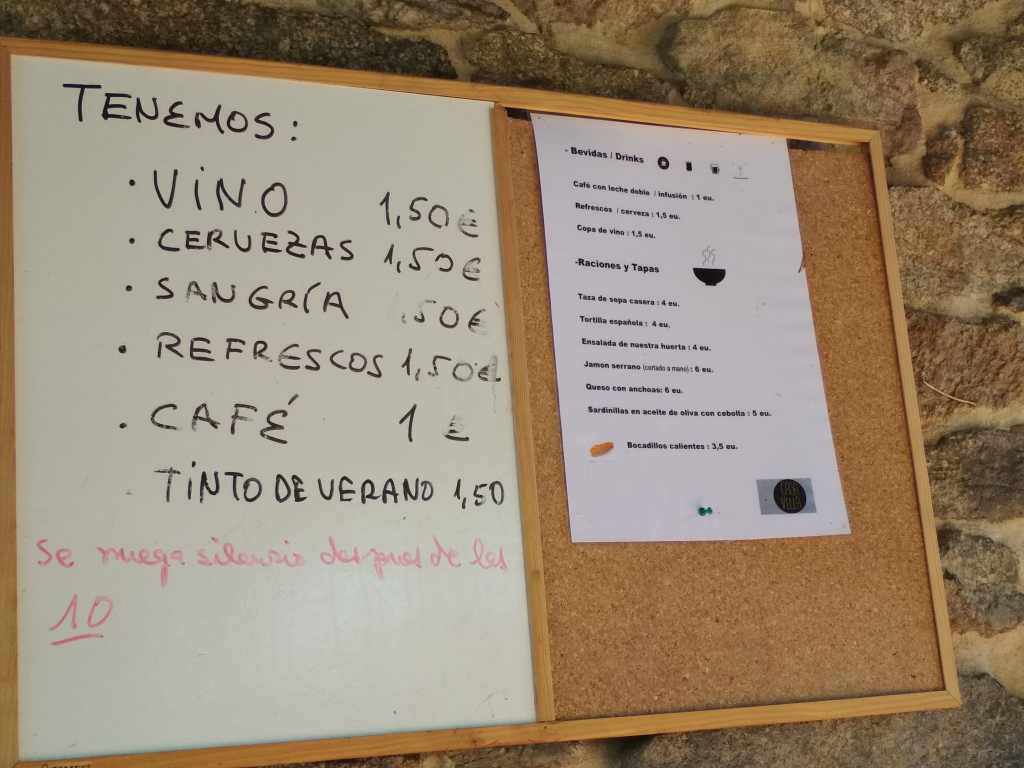 TENEMOS:
· VINO 1,50€
· CERVEZAS 1,50€
· SANGRÍA .50€
· REFRESCOS 1,50€
· CAFÉ 1 €
TINTO DE VERANO 1,50
Se ruega silencio despues de las
10
- Bevidas / Drinks
Café con leche doble / infusión : 1 eu.
Refrescos / cerveza : 1,5 eu.
Copa de vino : 1,5 eu.
-Raciones y Tapas
Taza de sopa casera : 4 eu.
Tortilla española : 4 eu.
Ensalada de nuestra huerta : 4 eu.
Jamon serrano (cortado a mano) : 6 eu.
Queso con anchoas: 6 eu.
Sardinillas en aceite de oliva con cebolla : 5 eu.
Bocadillos calientes : 3,5 eu.